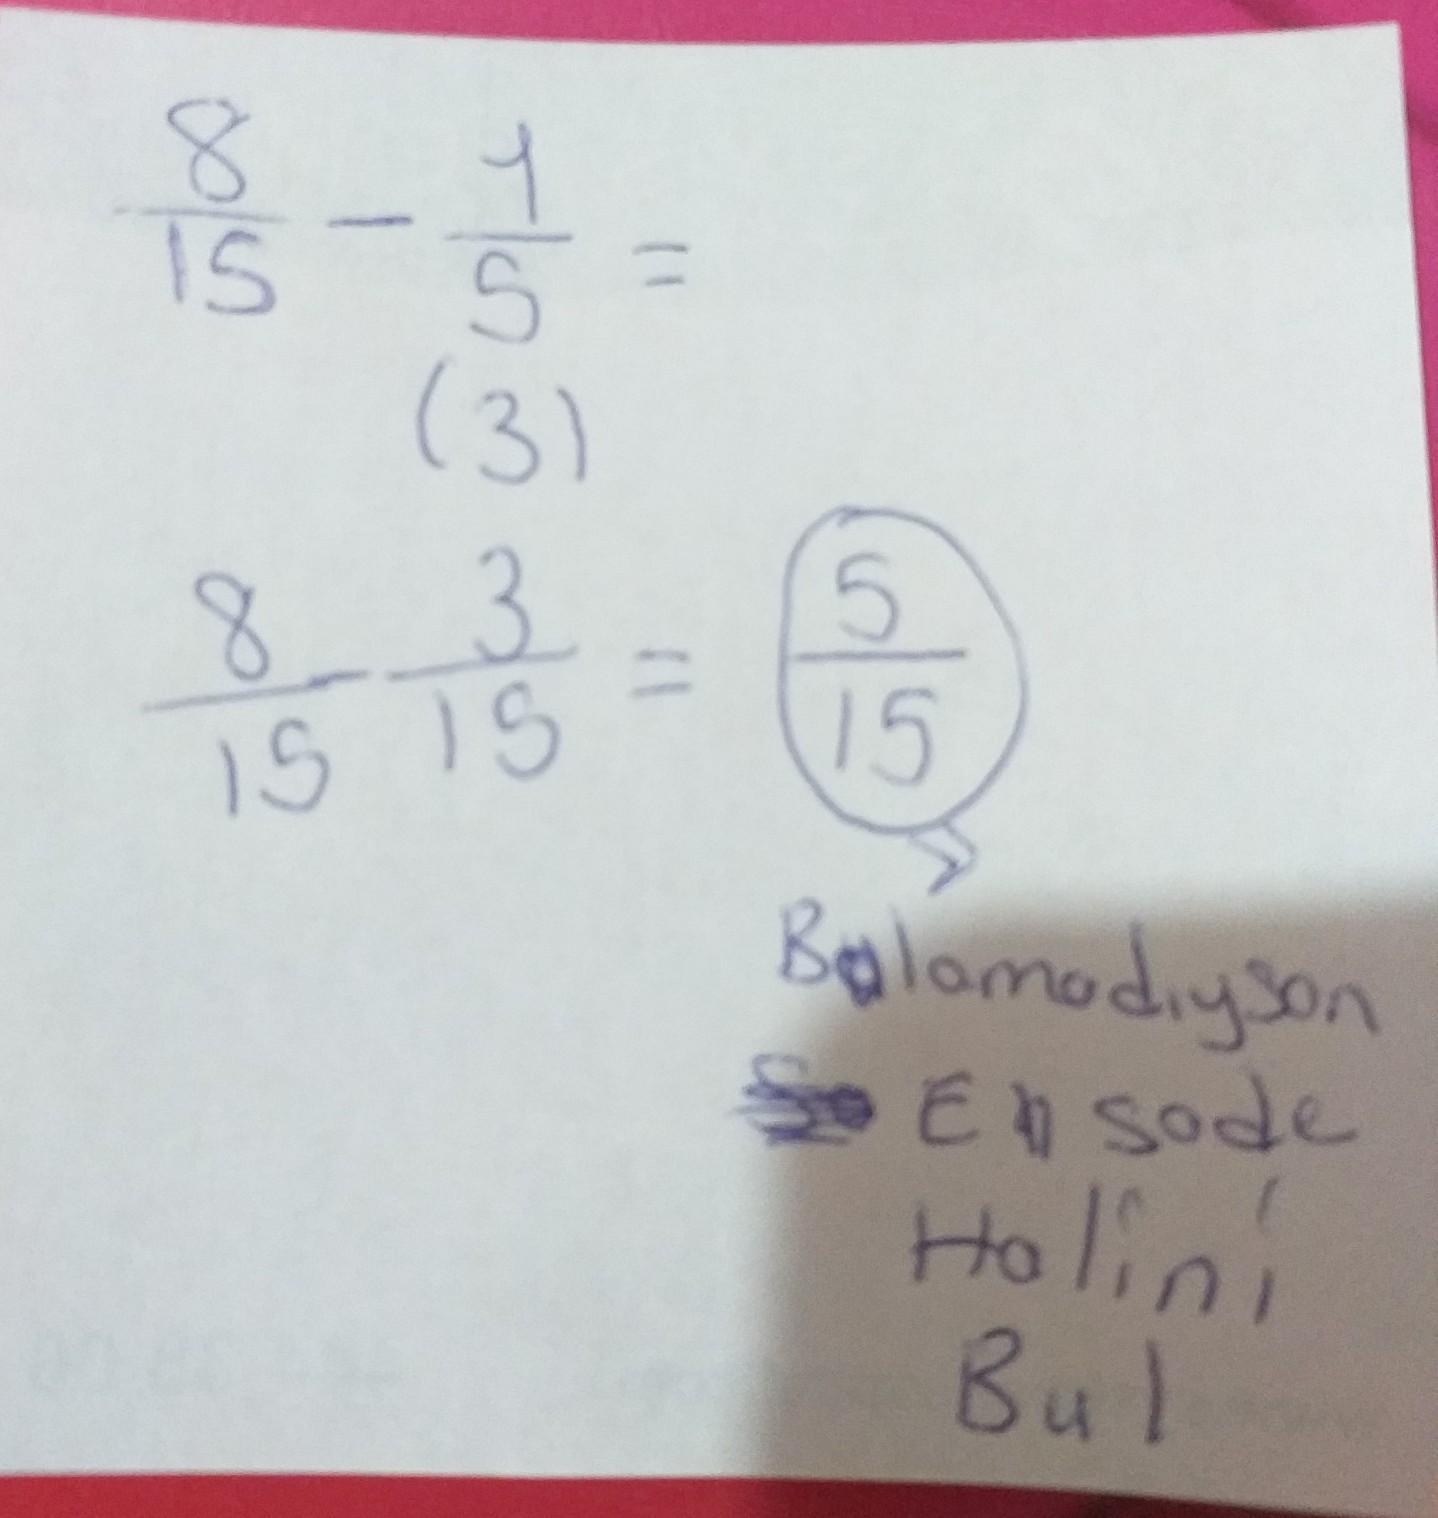 8/15 - 1/5 =
(3)
8/15 - 3/15 = 5/15
Bulamadıysan
En sade
Halini
Bul